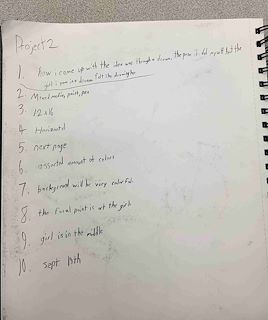 Project 2
1. how i come up with the idea was through a dream, the pose i did myself but the
girl i saw in a dream felt like drawing her
2. Mixed media, paint, pen
3. 12x16
4 Horizontal
5 next page
6. assorted amount of colors
7. background will be very colorful
8 the focal point is at the girl
9. girl is in the middle
10. sept 19th